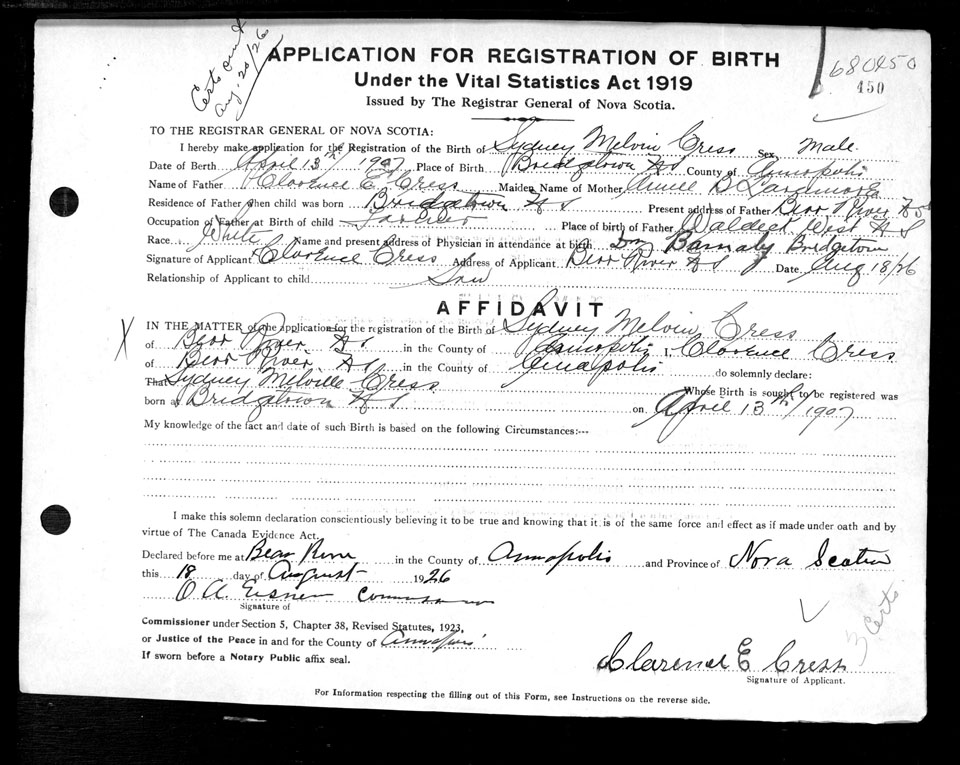 Certs out
Aug. 20/26
680450
450
APPLICATION FOR REGISTRATION OF BIRTH
Under the Vital Statistics Act 1919
Issued by The Registrar General of Nova Scotia.
TO THE REGISTRAR GENERAL OF NOVA SCOTIA:
I hereby make application for the Registration of the Birth of Sydney Melvin Cress Sex Male.
Date of Birth April 13th 1907 Place of Birth Bridgtown N S County of Annopolis
Name of Father Clorence E. Cress Maiden Name of Mother B.
Residence of Father when child was born Bridgtown N S Present address of Father Bear River N S
Occupation of Father at Birth of child Place of birth of Father Waldeck West N S
Race White Name and present address of Physician in attendance at birth Barnaby Bridgetown
Signature of Applicant Clorence Cress Address of Applicant Bear River N S Date Aug 18/26
Relationship of Applicant to child
AFFIDAVIT
X IN THE MATTER of the application for the registration of the Birth of Sydney Melvin Cress
of Bear River. N S in the County of Annopolis I, Clorence Cress
of Bear River. N S in the County of Annapolis do solemnly declare:
That Sydney Melville Cress Whose Birth is sought to be registered was
born at Bridgtown N S on April 13th 1907
My knowledge of the fact and date of such Birth is based on the following Circumstances:---
I make this solemn declaration conscientiously believing it to be true and knowing that it is of the same force and effect as if made under oath and by
virtue of The Canada Evidence Act.
Declared before me at Bear River in the County of Annapolis and Province of Nova Scotia
this 18 day of August 1926
O A. Eisner Commissioner
Signature of
Commissioner under Section 5, Chapter 38, Revised Statutes, 1923,
or Justice of the Peace in and for the County of Annapolis
If sworn before a Notary Public affix seal.
3 Certs.
Clarence E Cress
Signature of Applicant.
For Information respecting the filling out of this Form, see Instructions on the reverse side.